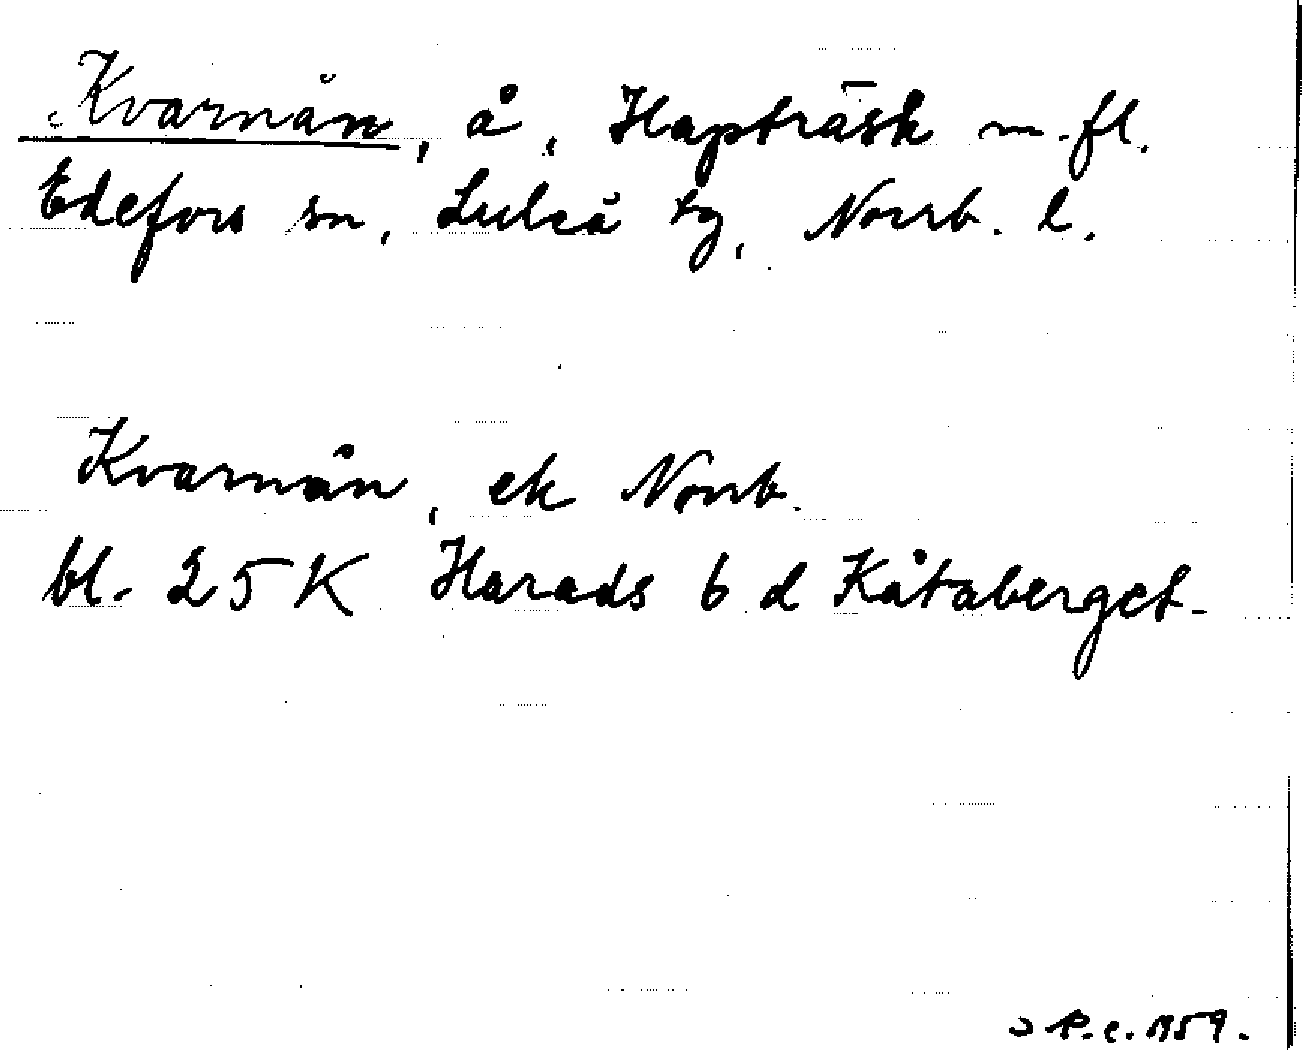 Kvarnån, å, Hapträsk m.fl.
Edefors sn, Luleå tg, Norrb. l.
Kvarnån, ek Norrb.
bl. 25 K Harads 6 d Kåtaberget.
1959.